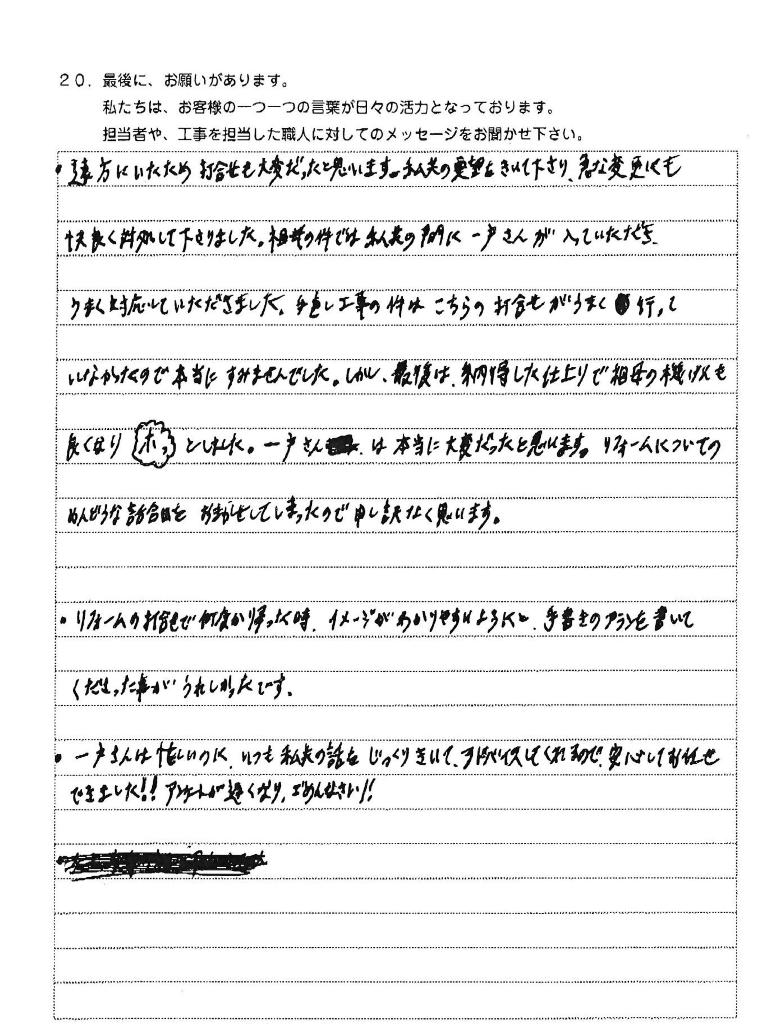 20. 最後に、お願いがあります。
私たちは、お客様の一つ一つの言葉が日々の活力となっております。
担当者や、工事を担当した職人に対してのメッセージをお聞かせ下さい。
・遠方にいたため 打合せも大変だったと思います。私共の要望をきいて下さり、急な変更にも
快良く対処して下さりました。祖母の件では私共の間に 一戸さんが 入っていただき
うまく対応していただきました。手直し工事の件は こちらの 打合せがうまく 行って
いなかったので本当に すみませんでした。しかし、最後は、納得した仕上りで祖母の機げんも
良くなり ホッ としました。一戸さん は 本当に大変だったと思います。リフォームについての
めんどうな話合いを おまかせしてしまったので申し訳なく思います。
・リフォームの打合せで何度か帰った時、イメージがわかりやすいようにと、手書きのプランを書いて
くださった事がうれしかったです。
・一戸さんは忙しいのに、いつも私共の話をじっくりきいて、アドバイスしてくれるので、安心してお任せ
できました!! アンケートが遅くなり、ごめんなさい!!